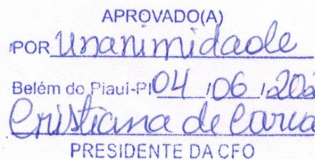 APROVADO(A)
POR Unanimidade
Belém do Piauí-PI 04 / 06 / 202
Cristiana de
PRESIDENTE DA CFO